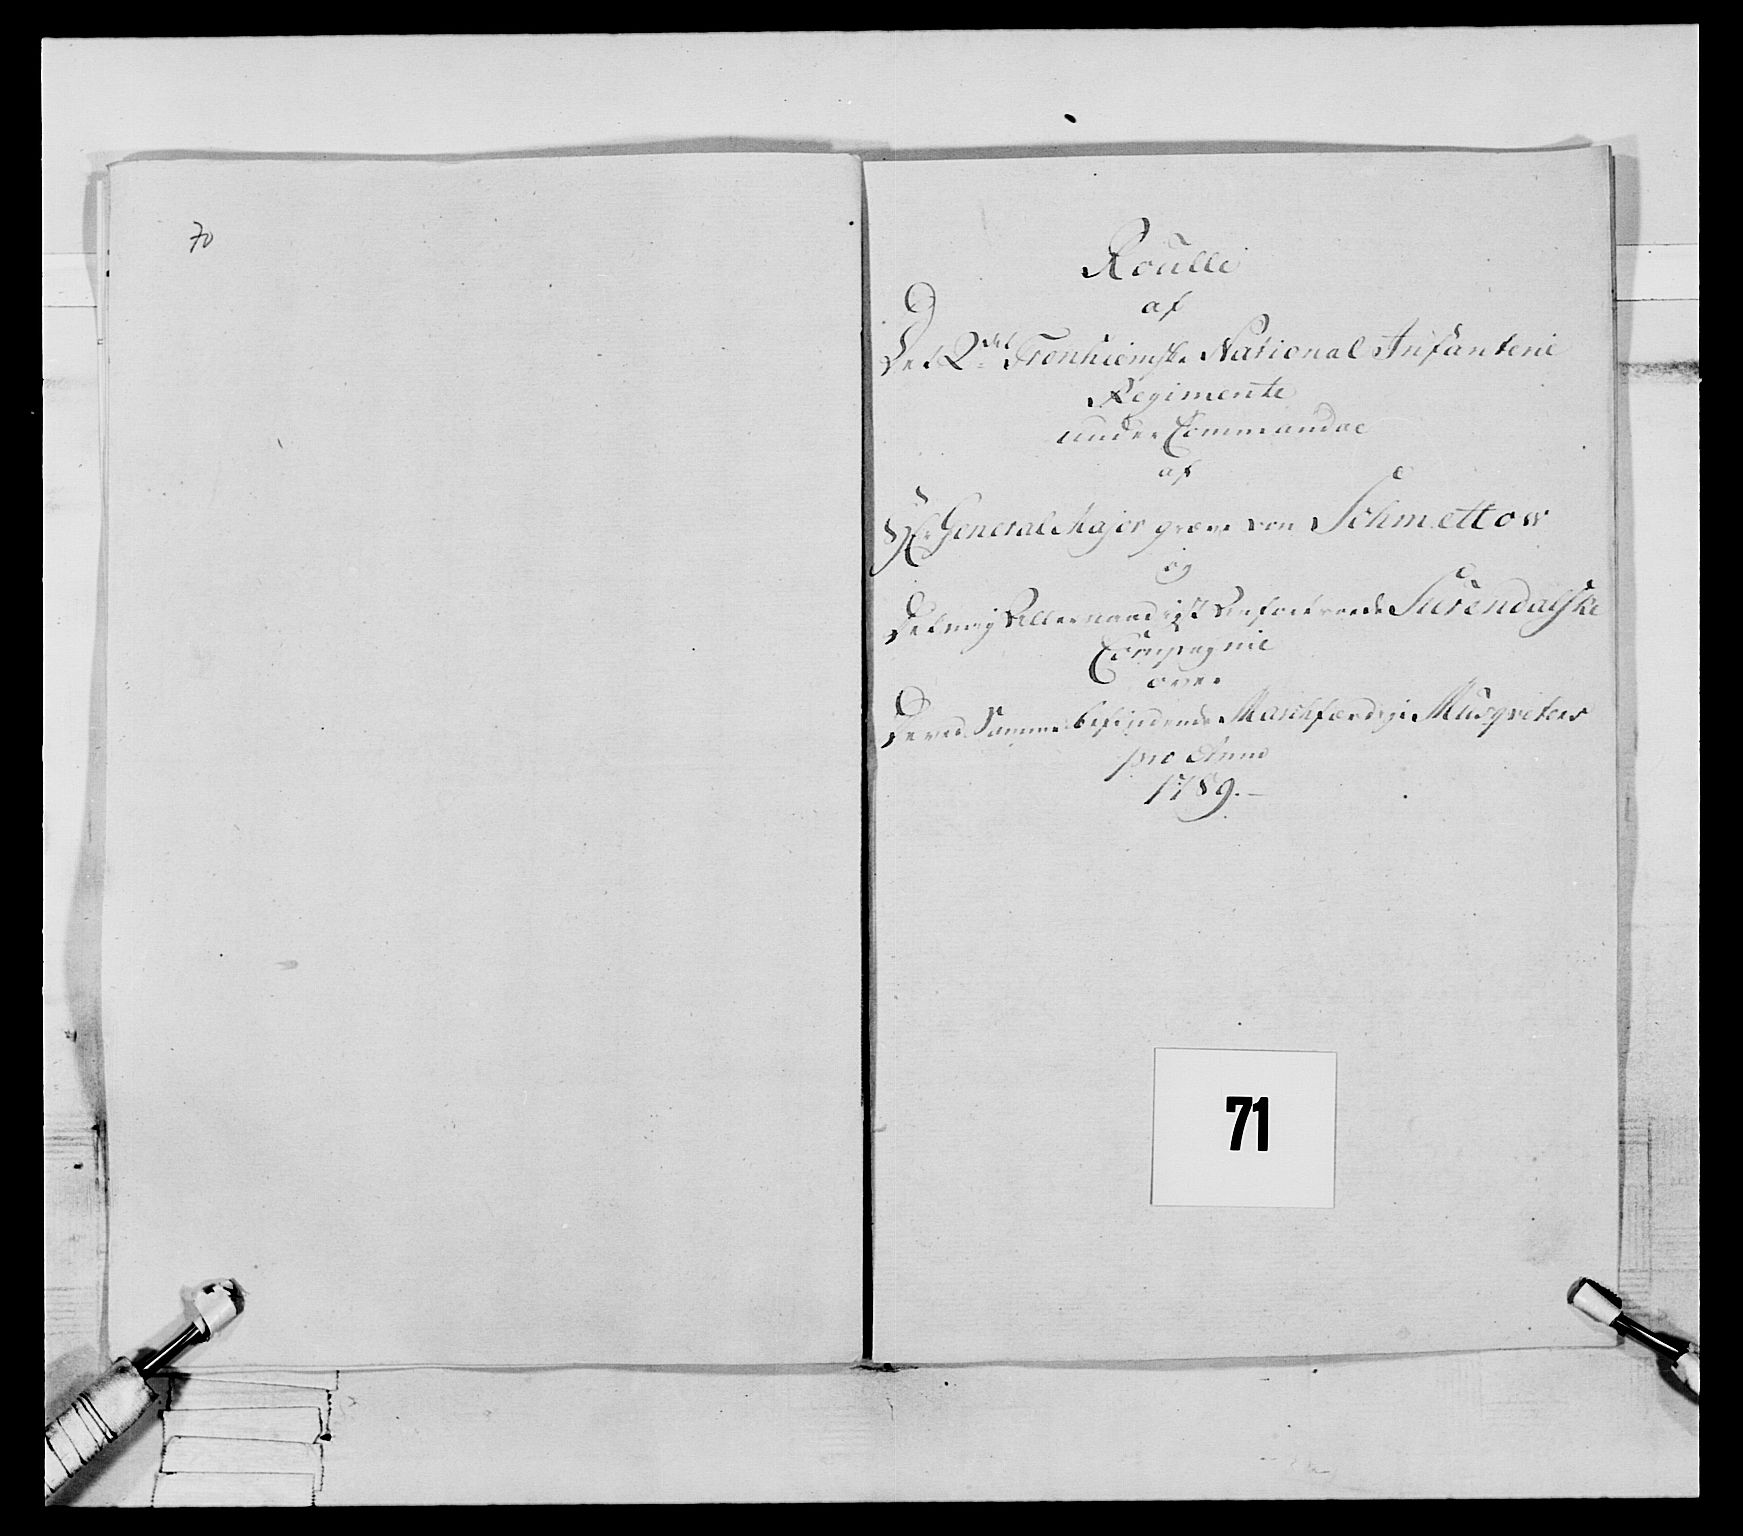 70
Roulle
af
Det 2det Tronhiemske National Infanterie
Regimente
under Commandoe
af
Hr General Major greve von Schmettow
og
Det mig Allernaadigst Anfortroede Surendalske
Compagnie
over
De ved Samme befindende Marchfærdige Musqveterer
pro Anno
1789.
71